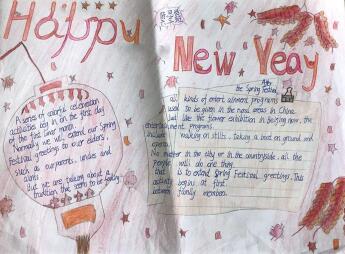 Happy
New Yeay
A series of colorful celebration
activities begin on the first day
of the first lunar month.
Normally we will extend our Spring
Festival greetings to our elders,
such as our parents, uncles and
aunts.
But we are talking about a
tradition that seems to be fading.
After
the Spring Festival,
all kinds of entertainment programs
used to be given in the rural areas in China.
Just like the flower exhibition in Beijing now, the
entertainment programs
include walking on stilts, taking a boat on ground and
opera.
No matter in the city or in the countryside, all the
people will do is
that is to extend Spring Festival greetings. This
activity begins at first
between family members.